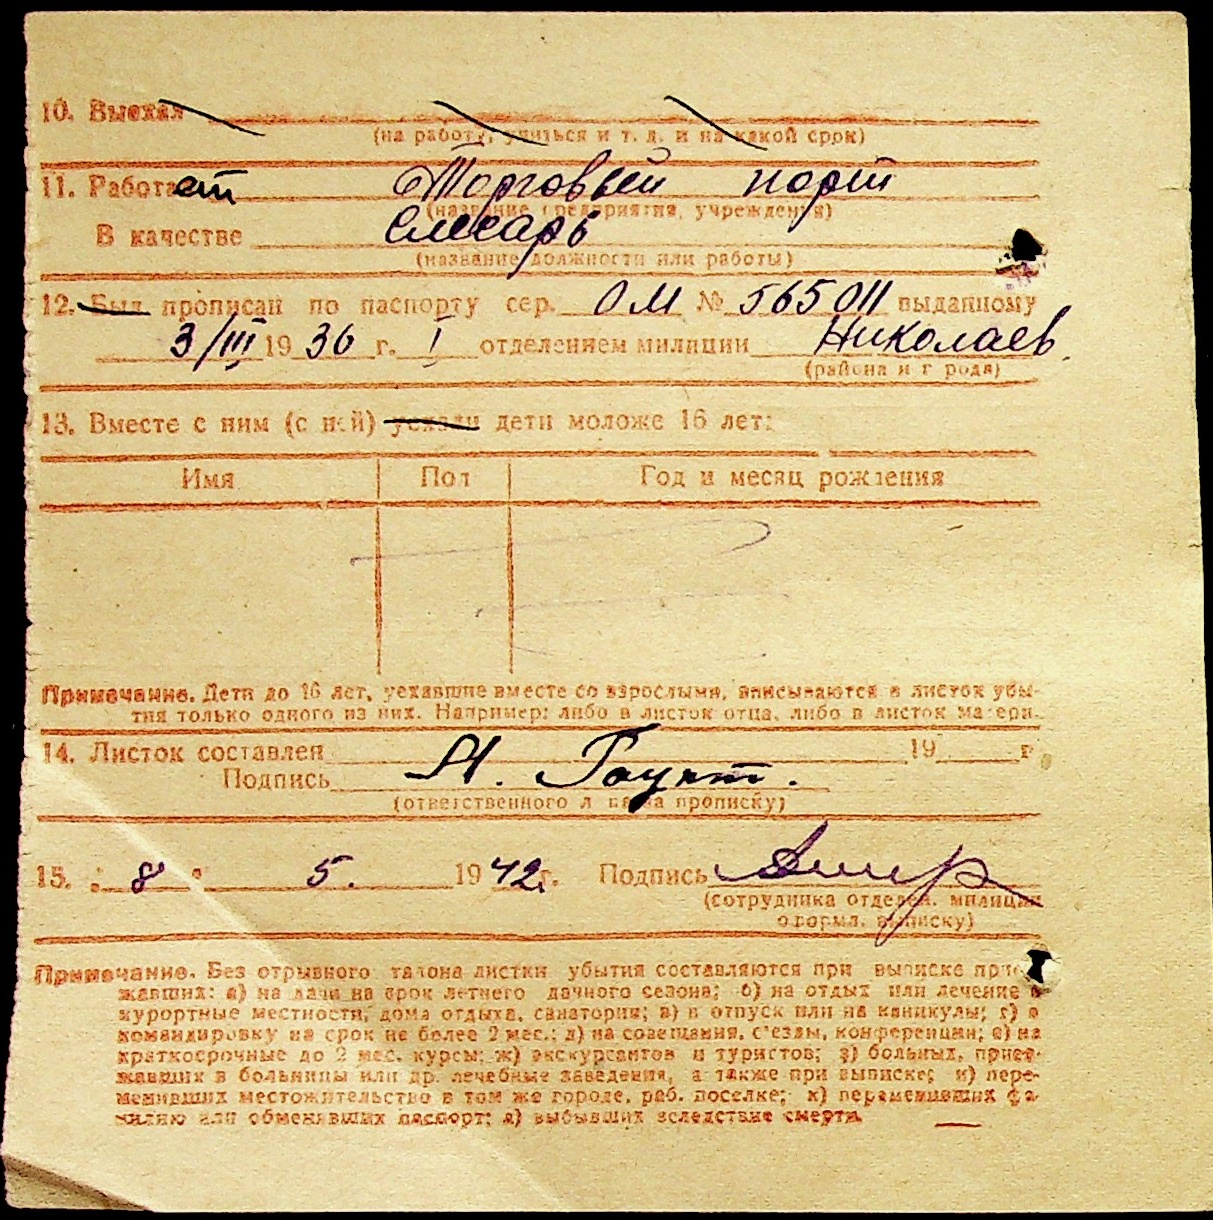 10. Выехал
(на работу, учиться и т. д. и на какой срок)
11. Работает Торговый порт
(название предприятия, учреждения)
В качестве слесарь
(название должности или работы)
12. Был прописан по паспорту сер. ОМ № 565011 выданному
3/III 1936 г. I отделением милиции Николаев
(района и города)
13. Вместе с ним (с ней) уехали дети моложе 16 лет:
Имя Пол Год и месяц рождения
Примечание. Дети до 16 лет, уехавшие вместе со взрослыми, вписываются в листок убы-
тия только одного из них. Например: либо в листок отца, либо в листок матери.
14. Листок составлен 19 г
Подпись
(ответственного л за прописку)
15. „8“ 5. 1942 г. Подпись
(сотрудника отделен. милиции
оформл. выписку)
Примечание. Без отрывного талона листки убытия составляются при выписке прие-
жавших: а) на дачи на срок летнего дачного сезона; б) на отдых или лечение в
курортные местности, дома отдыха, санатории; в) в отпуск или на каникулы; г) в
командировку на срок не более 2 мес.; д) на совещания, с'езды, конференции; е) на
краткосрочные до 2 мес. курсы; ж) экскурсантов и туристов; з) больных, приез-
жавших в больницы или др. лечебные заведения, а также при выписке; и) пере-
менивших местожительство в том же городе, раб. поселке; к) переменивших фа-
милию или обменявших паспорт; л) выбывших вследствие смерти.